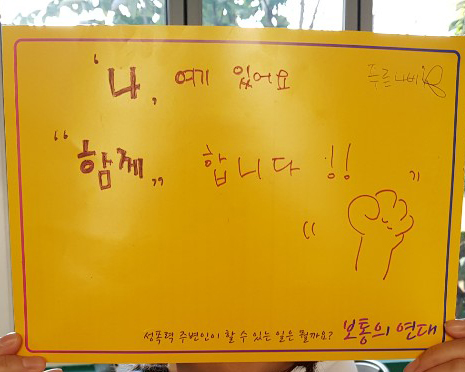 '나, 여기 있어요
푸른나비
"함께" 합니다!!
성폭력 주변인이 할 수 있는 일은 뭘까요? 보통의 연대